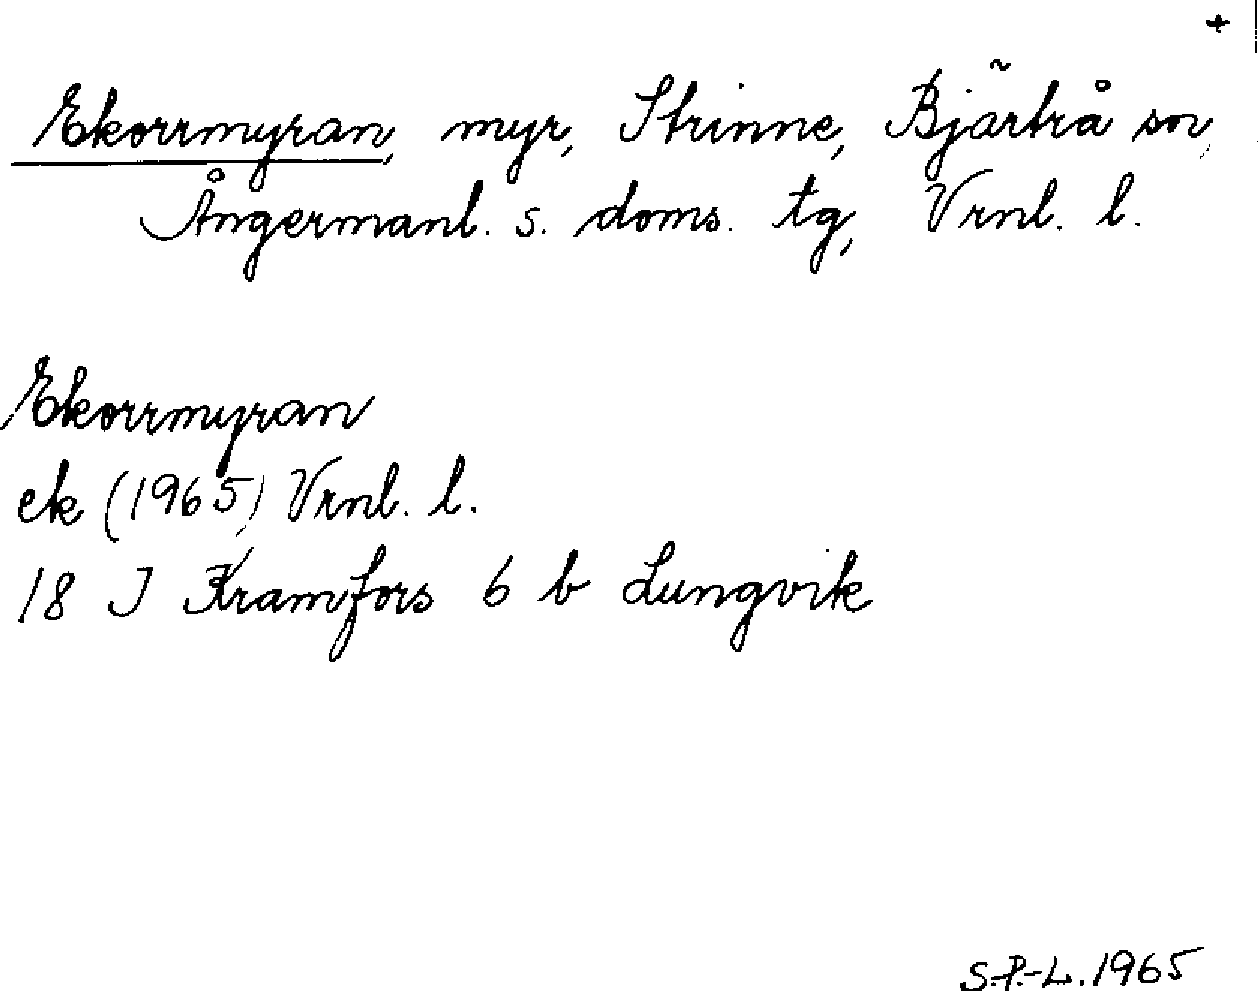 +
Ekorrmyran, myr, Strinne, Bjärtrå sn,
Ångermanl. s. doms. tg, Vrnl. l.
Ekorrmyran
ek (1965) Vrnl. l.
18 J Kramfors 6 b Lungvik
S.P.-L. 1965